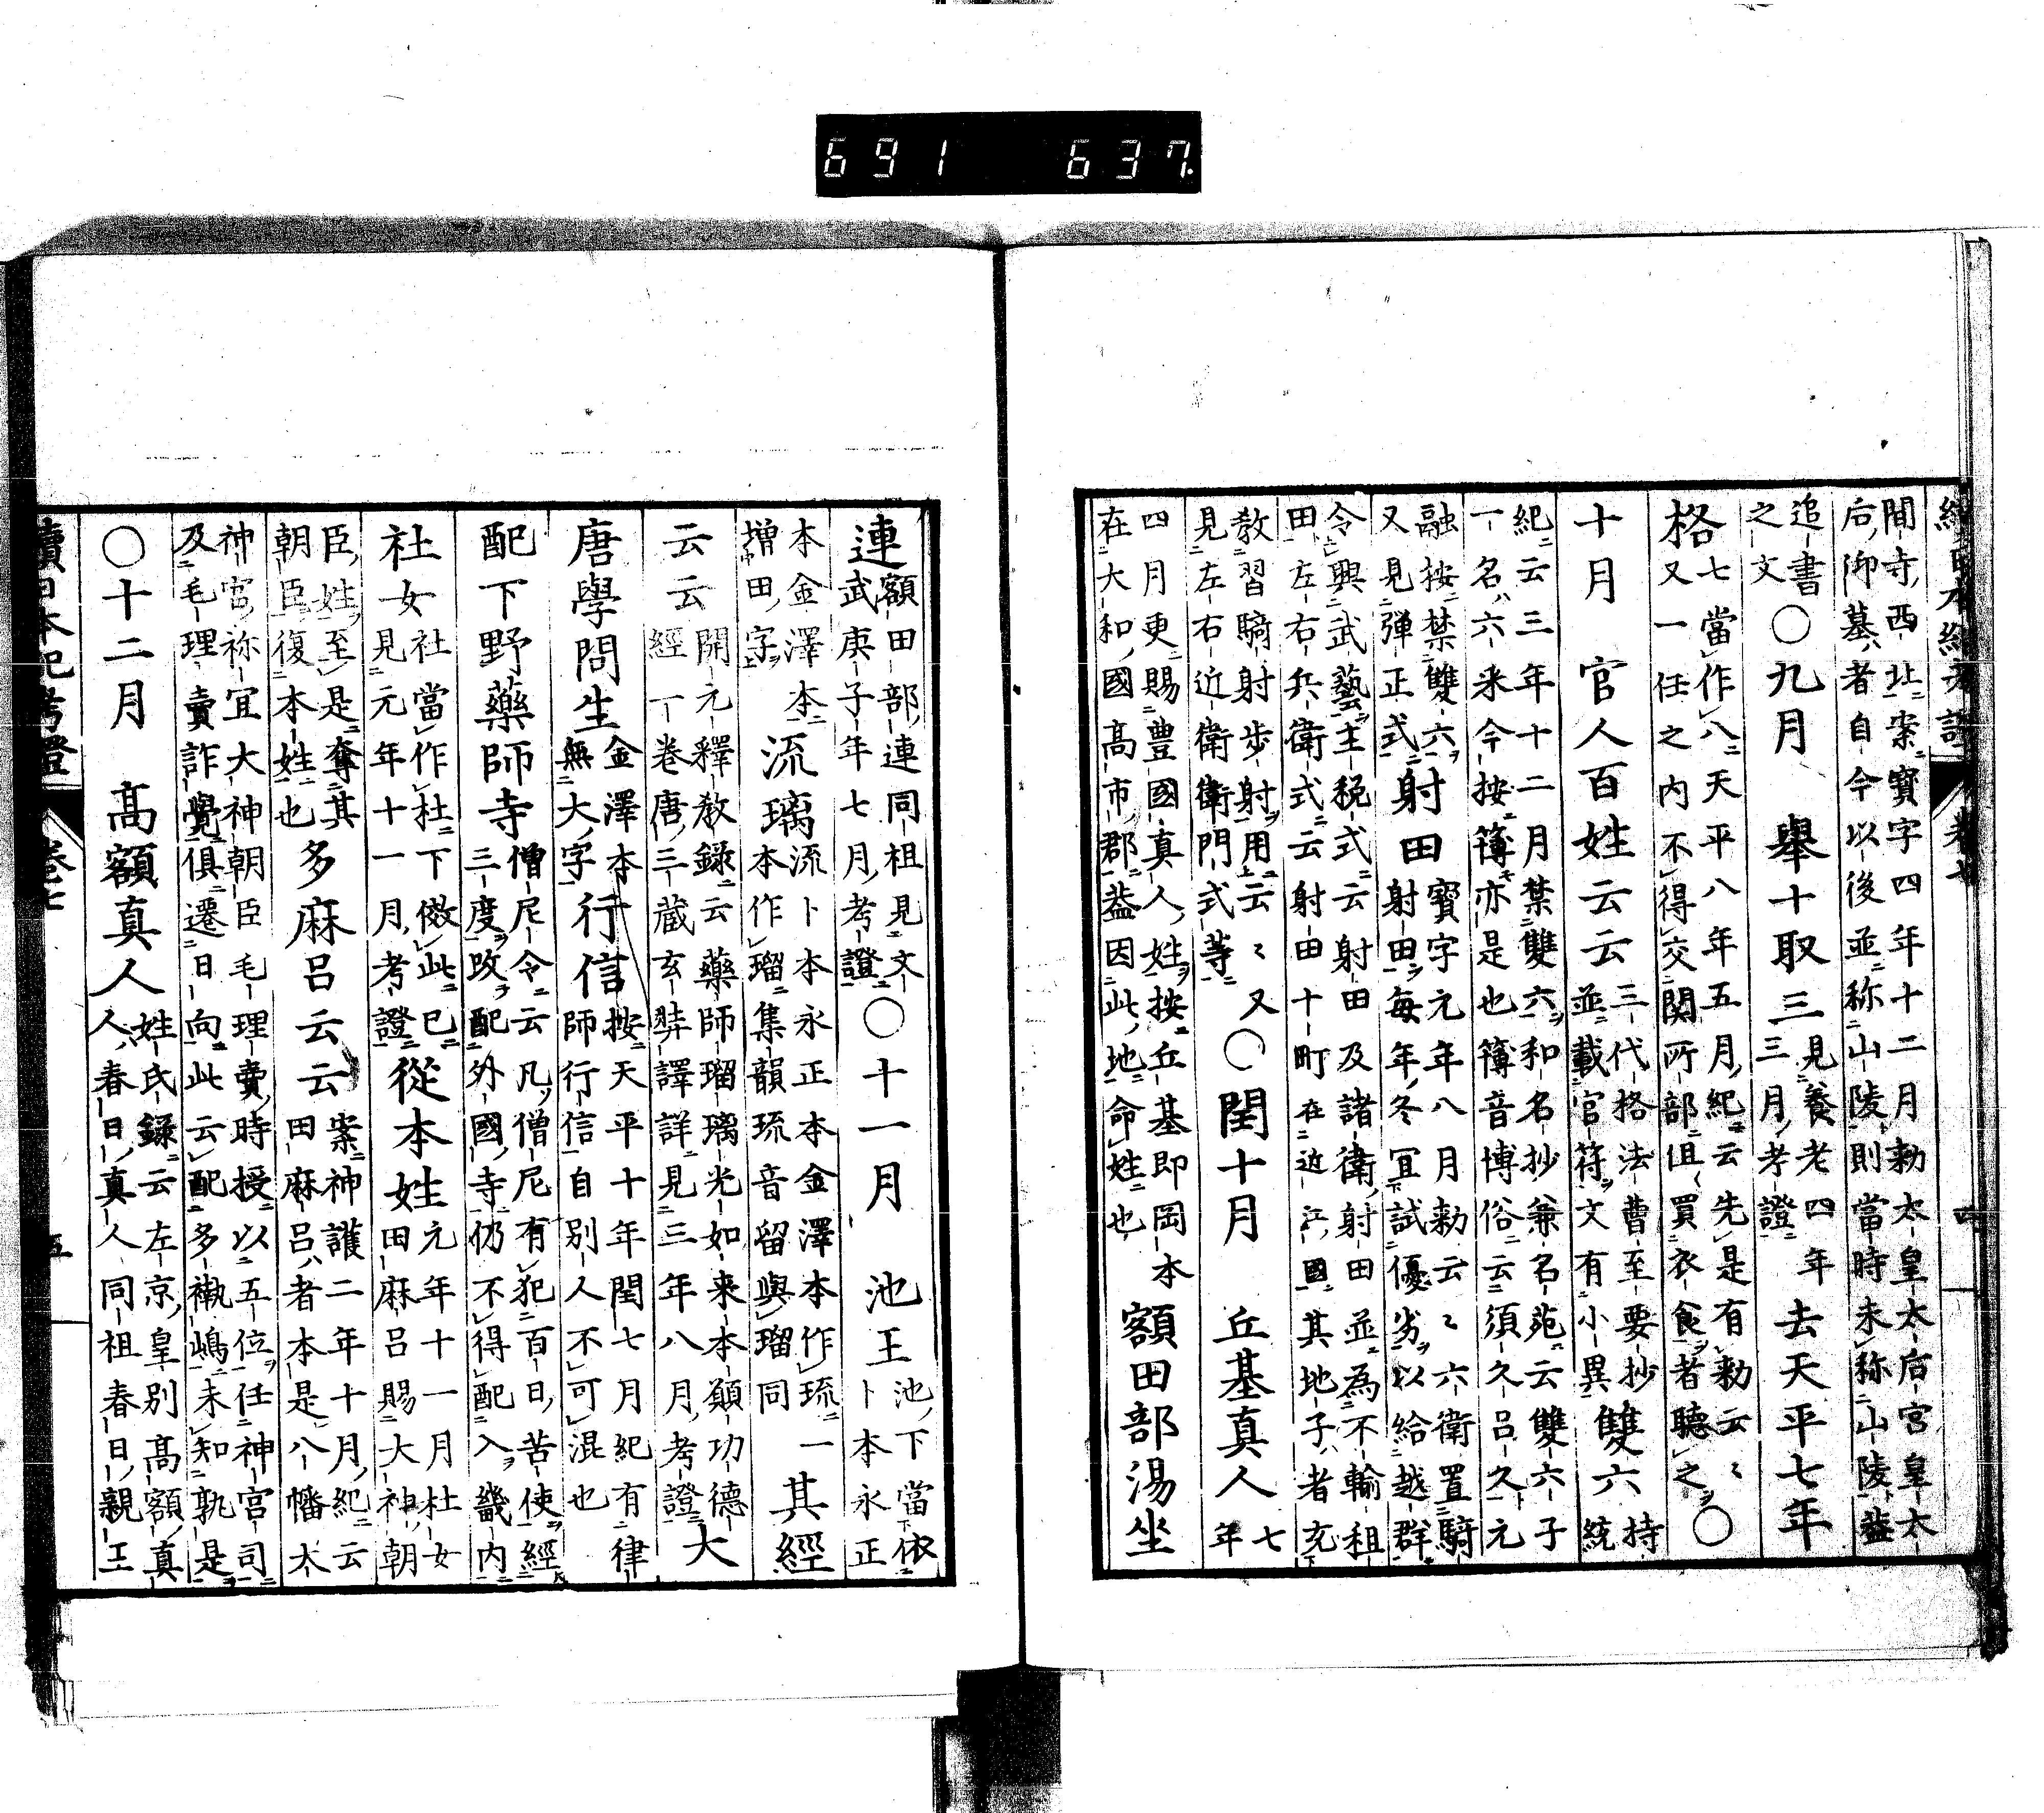 691 637
續日本紀考證 卷七 四
間寺西北案寶字四年十二月勅太皇太后宮皇太
后御墓者自今以後並称山陵則當時未称山陵蓋
追書
之文〇九月 舉十取三見養老四年
三月考證去天平七年
格七當作八天平八年五月紀云先是有勅云〻
又一任之内不得交関所部但買衣食者聽之〇
十月 官人百姓云云三代格法曹至要抄
並載官符文有小異雙六持
統
紀云三年十二月禁雙六和名抄兼名苑云雙六子
一名六采今按簿亦是也簿音博俗云須久呂久元
融按禁雙六
又見弾正式射田寶字元年八月勅云〻六衛置騎
射田毎年冬冝試優劣以給越群
令興武藝主税式云射田及諸衛射田並為不輸租
田左右兵衛式云射田十町在近江國其地子者充
教習騎射歩射用云〻又
見左右近衛衛門式等〇閏十月 丘基真人七
年
四月更賜豊國真人姓按丘基即岡本
在大和國高市郡蓋因此地命姓也額田部湯坐
連額田部連同祖見文
武庚子年七月考證〇十一月 池王池下當依
卜本永正
本金澤本
増田字流璃流卜本永正本金澤本作琉一
本作瑠集韻琉音留與瑠同其經
云云開元釋教録云藥師瑠璃光如来本願功德
經一卷唐三藏玄弉譯詳見三年八月考證大
唐學問生金澤本
無大字行信按天平十年閏七月紀有律
師行信自別人不可混也
配下野藥師寺僧尼令云凡僧尼有犯百日苦使經
三度改配外國寺仍不得配入畿内
社女社當作杜下傚此已
見元年十一月考證從本姓元年十一月杜女
田麻呂賜大神朝
臣姓至是奪其
朝臣復本姓也多麻呂云云案神護二年十月紀云
田麻呂者本是八幡太
神宮祢宜大神朝臣毛理賣時授以五位任神宮司
及毛理賣詐覺倶遷日向此云配多褹嶋未知孰是
〇十二月 高額真人姓氏録云左京皇別高額真
人春日真人同祖春日親王
續日本紀考證 卷七 五